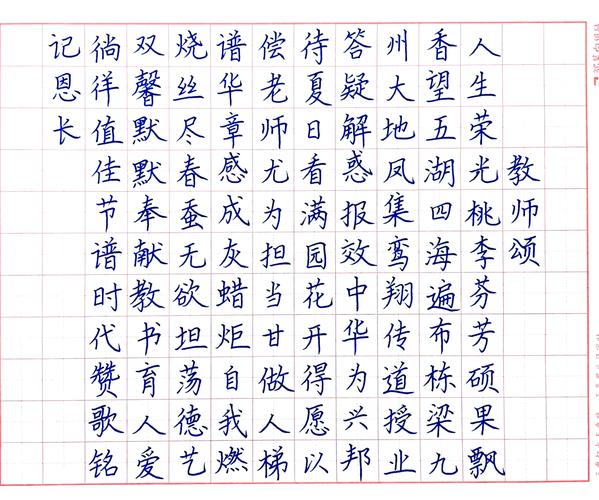 教师颂
人生荣光桃李芬芳硕果飘
香望五湖四海遍布栋梁九
州大地凤集鸾翔传道授业
答疑解惑报效中华为兴邦
待夏日看满园花开得愿以
偿老师尤为担当甘做人梯
谱华章感成灰蜡炬自我燃
烧丝尽春蚕无欲坦荡德艺
双馨默默奉献教书育人爱
徜徉值佳节谱时代赞歌铭
记恩长